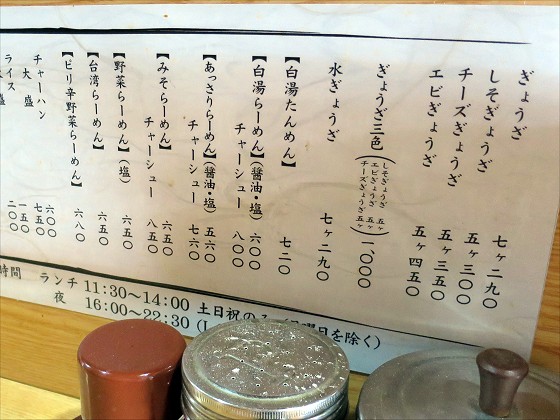 ぎょうざ 七ヶ二九〇
しそぎょうざ 五ヶ三〇〇
チーズぎょうざ 五ヶ三五〇
エビぎょうざ 五ヶ四五〇
ぎょうざ三色(しそぎょうざ 五ヶ エビぎょうざ 五ヶ チーズぎょうざ 五ヶ) 一、〇〇〇
水ぎょうざ 七ヶ二九〇
【白湯たんめん】 七二〇
【白湯らーめん】(醤油・塩) 六〇〇
チャーシュー 八〇〇
【あっさりらーめん】(醤油・塩) 五六〇
チャーシュー 七六〇
【みそらーめん】 六五〇
チャーシュー 八五〇
【野菜らーめん】(塩) 六五〇
【台湾らーめん】 六五〇
【ピリ辛野菜らーめん】 六八〇
チャーハン 六〇〇
大盛 七五〇
ライス 一五〇
大盛 二〇〇
時間 ランチ 11:30〜14:00 土日祝のみ
夜 16:00〜22:30 (L 曜日を除く)